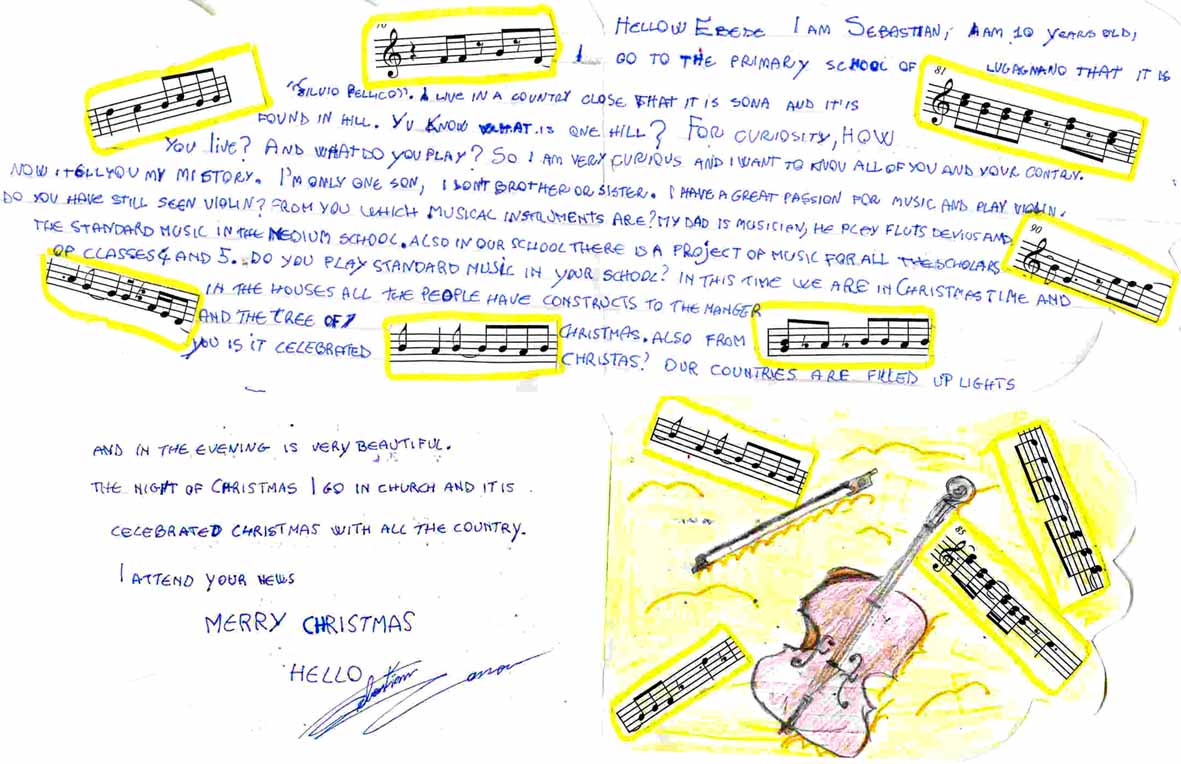 HELLOW EBEDE I AM SEBASTIAN, I AM 10 YEARS OLD,
I GO TO THE PRIMARY SCHOOL OF LUGAGNANO THAT IT IS
"SILVIO PELLICO". I LIVE IN A COUNTRY CLOSE THAT IT IS SONA AND IT'IS
FOUND IN HILL. YU KNOW WHAT IS ONE HILL? FOR CURIOSITY, HOW
YOU LIVE? AND WHAT DO YOU PLAY? SO I AM VERY CURIOUS AND I WANT TO KNOU ALL OF YOU AND YOUR CONTRY.
NOW I TELL YOU MY MISTORY. I'M ONLY ONE SON, I DONT BROTHER OR SISTER. I HAVE A GREAT PASSION FOR MUSIC AND PLAY VIOLIN.
DO YOU HAVE STILL SEEN VIOLIN? FROM YOU WHICH MUSICAL INSTRUMENTS ARE? MY DAD IS MUSICIAN, HE PLAY FLUTS DEVIUS AND
THE STANDARD MUSIC IN THE MEDIUM SCHOOL. ALSO IN OUR SCHOOL THERE IS A PROJECT OF MUSIC FOR ALL THE SCHOLARS
OF CLASSES 4 AND 5. DO YOU PLAY STANDARD MUSIC IN YOUR SCHOOL? IN THIS TIME WE ARE IN CHRISTMAS TIME AND
IN THE HOUSES ALL THE PEOPLE HAVE CONSTRUCTS TO THE MANGER
AND THE TREE OF CHRISTMAS. ALSO FROM
YOU IS IT CELEBRATED CHRISTAS? OUR COUNTRIES ARE FILLED UP LIGHTS
AND IN THE EVENING IS VERY BEAUTIFUL.
THE NIGHT OF CHRISTMAS I GO IN CHURCH AND IT IS
CELEBRATED CHRISTMAS WITH ALL THE COUNTRY.
I ATTEND YOUR NEWS
MERRY CHRISTMAS
HELLO
81
90
85